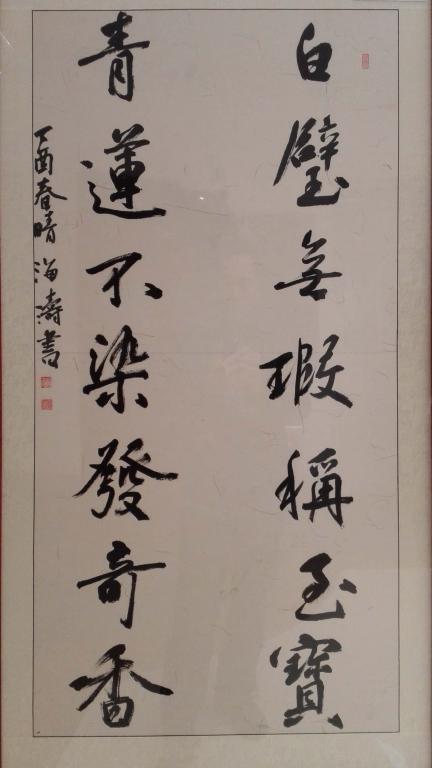 白璧無瑕稱至寶
青蓮不染發奇香
丁酉春晴海濤書